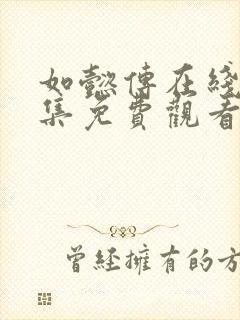 如懿傳在綫
集免費觀看
曾經擁有的方